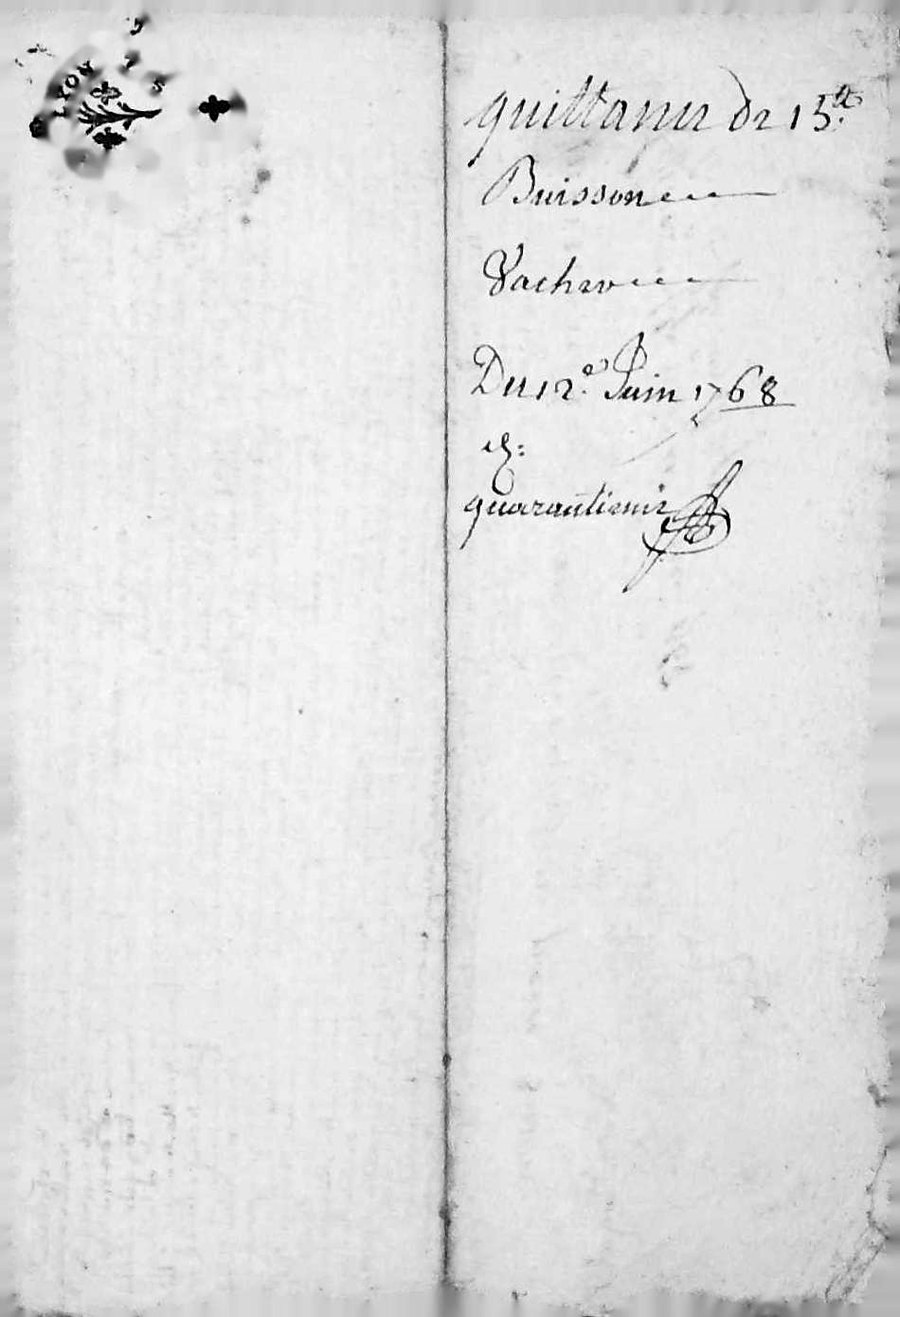 LYON
quittance de 15.tt
Buisson
Vacher
Du 12.e Juin 1768
quarantieme